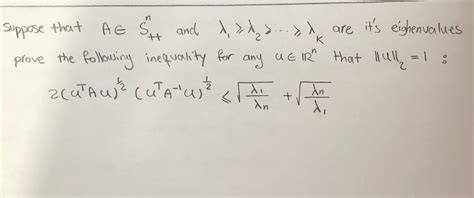 Suppose that A ∈ S^n_{++} and λ₁ ⩾ λ₂ ⩾ ··· ⩾ λ_K are it's eighenvalues
prove the following inequality for any u ∈ ℝ^n that ‖u‖₂ = 1 :
2(u^T A u)^{1/2} (u^T A^{-1} u)^{1/2} ⩽ √(λ₁/λn) + √(λn/λ₁)